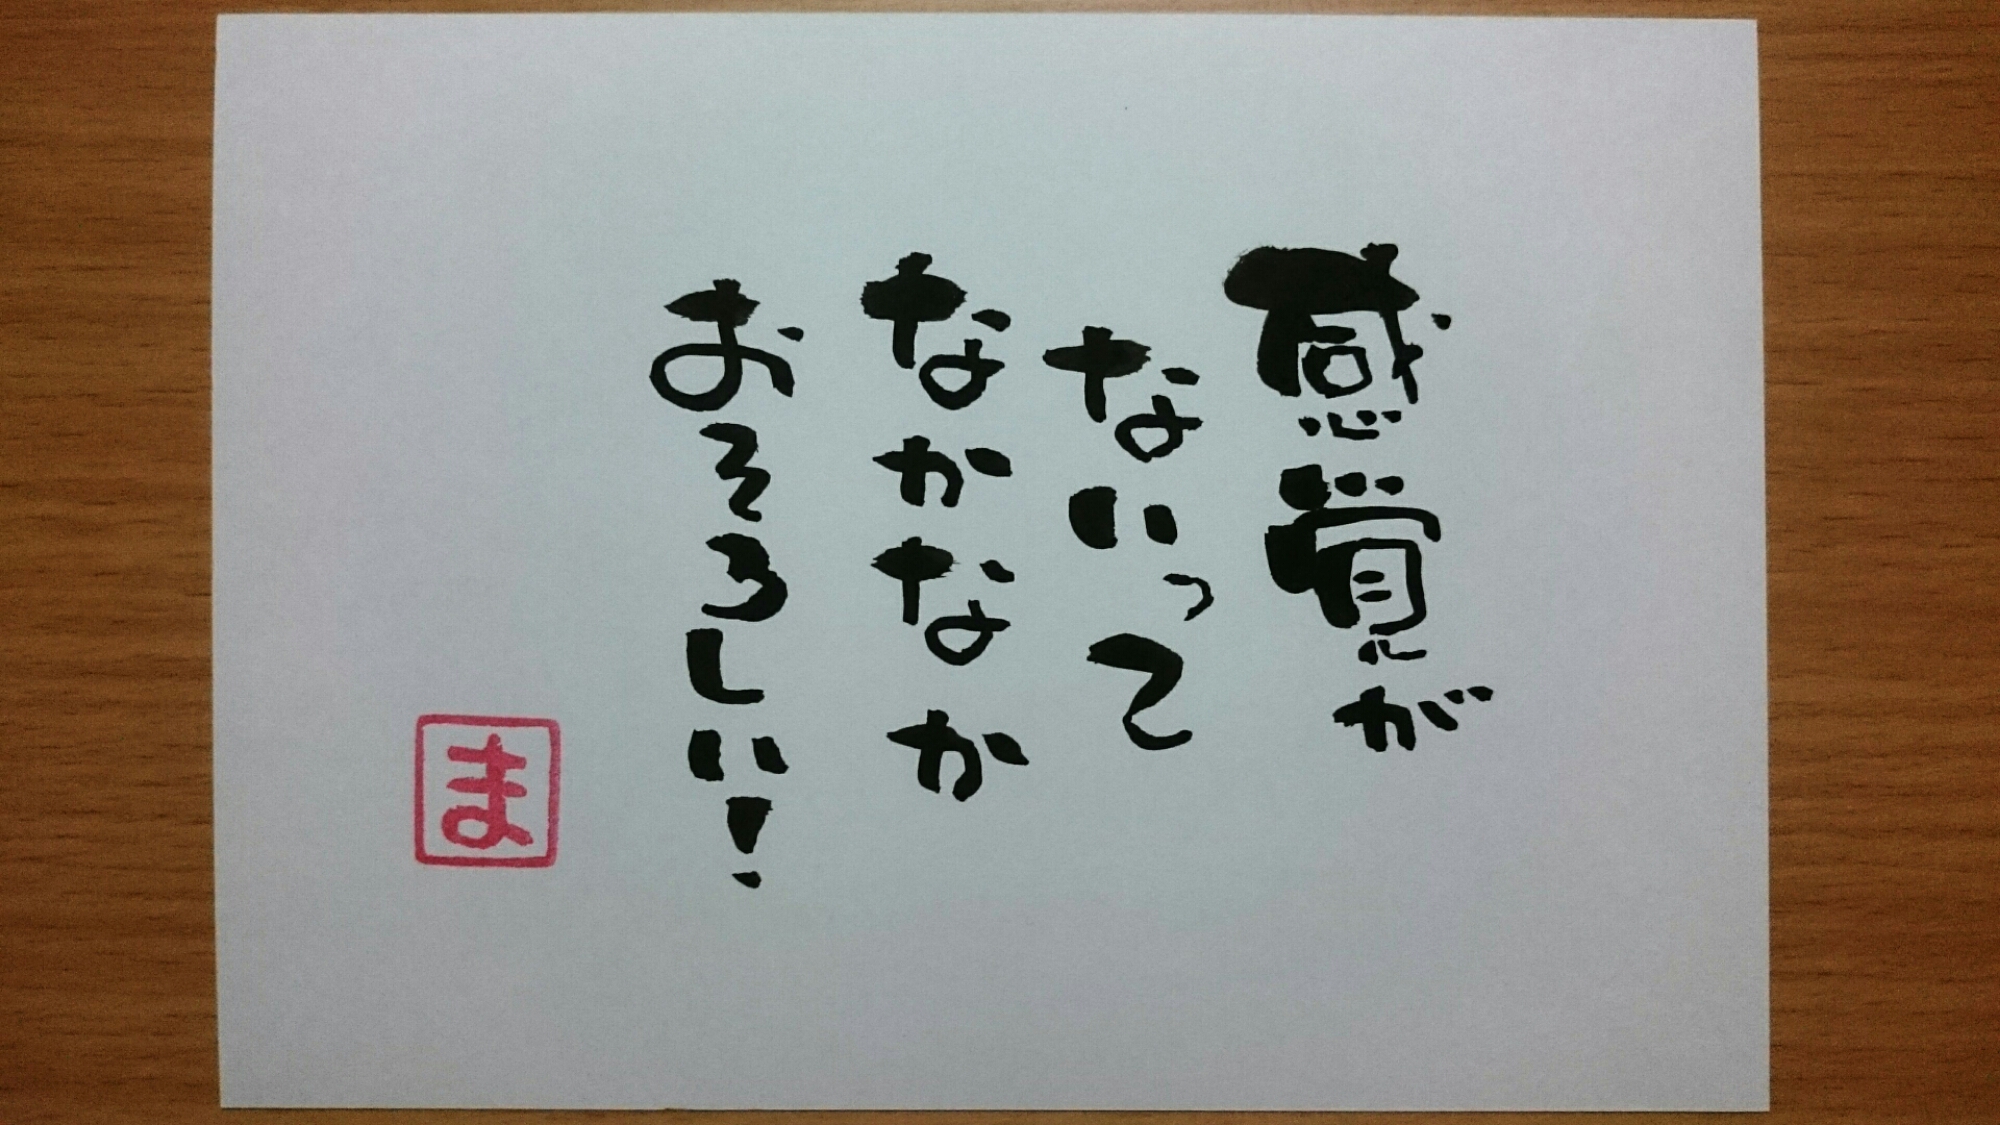 感覚が
ないって
なかなか
おそろしい!
ま